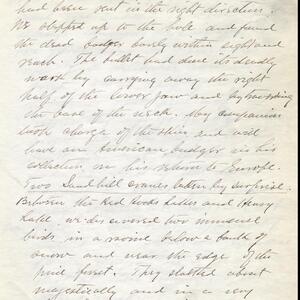 had been sent in the right direction.
We stepped up to the hole and found
the dead badger barely within sight and
reach. The bullet had done its deadly
work by carrying away the right
half of the lower jaw and by
the base of the neck. My companion
took charge of the skin and will
have an American badger in his
collection on his return to Europe.
Two Sand hill cranes taken by surprise.
Between the Red Rock Lakes and Henry
Lake we discovered two immense
birds in a ravine below a bank of
snow and near the edge of
the pine forest. They stalked about
majestically and in a very